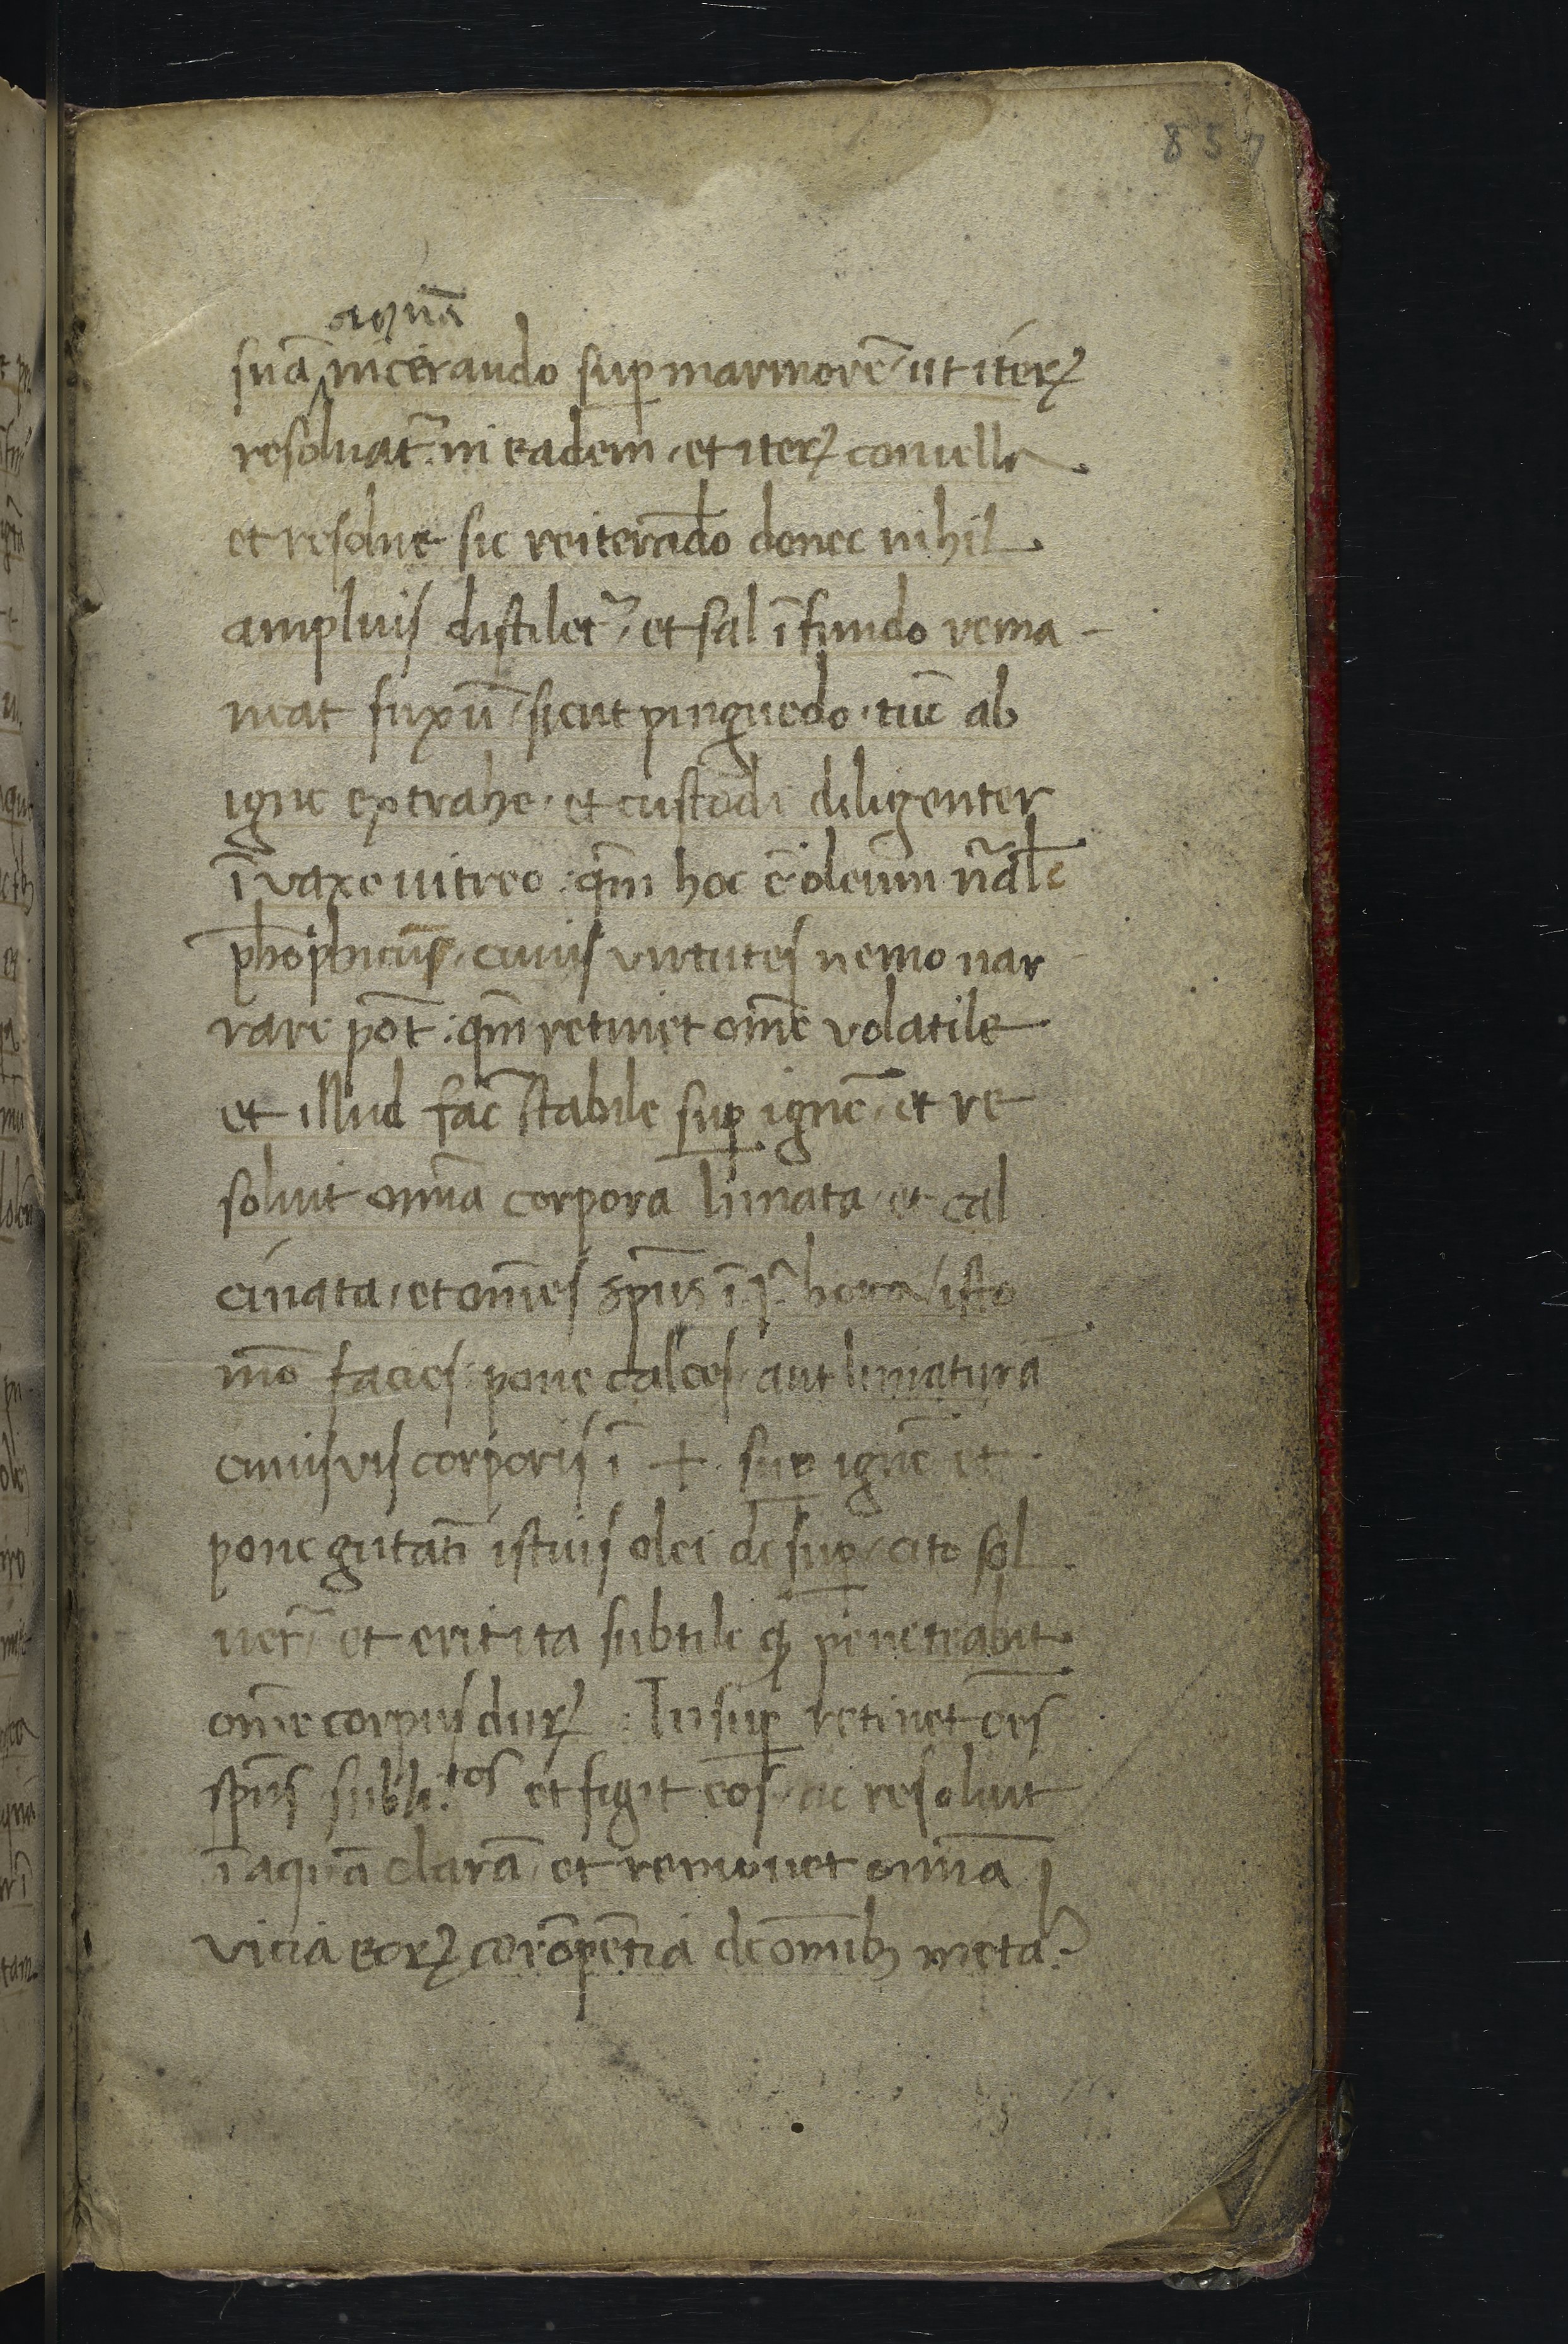 857
aquā
suā incerando sup marmorē / ut iterꝝ
resoluat᷑ in eadem · et iterꝝ conuella
et resolue sic reiterādo donec nihil
ampluis distilet᷑ / et sal ī fundo rema -
neat fixū / sicut pinguedo · tūc ab
igne extrahe · et custodi diligenter
ī vaxe uitreo : qm̄ hoc ē oleum nr̄ale
ph̄ophicus / cuius virtutes nemo nar
rare pōt : qm̄ retinet om̄e volatile
et illud fac̄ stabile sup ignē · et re
soluit omīa corpora limata · et cal
cinata / et omēs spūs ī · j᷑ hora / isto
mō facies : pone calces / aut limaturā
cuiusvis corporis ī + sup ignē et
pone gutatī istius olei desup / cito sol
uet᷑ / et erit ita subtile ꝙ penetrabit
om̄e corpus durꝝ : Insup retinet oēs
spūs subliᵗᵒˢ et figit eos / ac resoluit
ī aquā clarā / et remouet omīa
vicia eorꝝ corōpentia de omībꝫ meta᷑